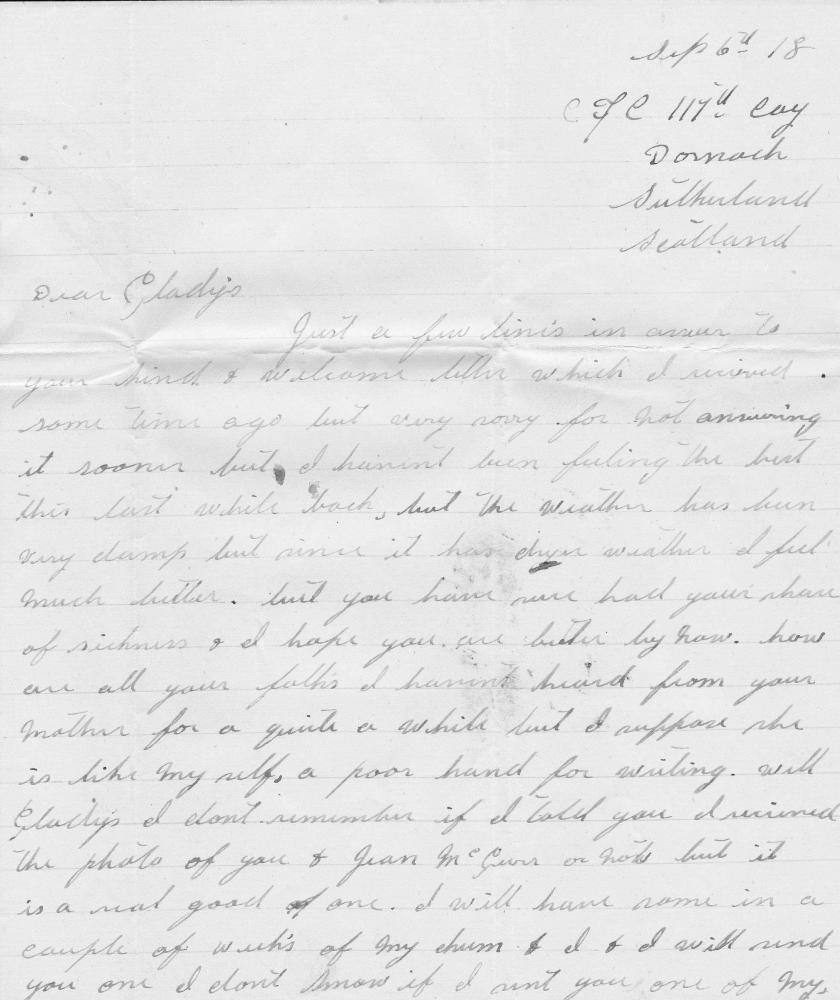 Sep 6th 18
C F C 117th Coy
Dornoch
Sutherland
Scotland
Dear Gladys
Just a few lines in answer to
your kind & welcome letter which I recieved
some time ago but very sorry for not answering
it sooner but I havent been feeling the best
this last while back, but the weather has been
very damp but since it has dryer weather I feel
much better. but you have sure had your share
of sickness & I hope you are better by now. how
are all your folks I havent heard from your
Mother for a quite a while but I suppose she
is like my self, a poor hand for writing. well
Gladys I dont remember if I told you I recieved
the photo of you & Jean or not but it
is a real good of one. I will have some in a
couple of weeks of my chum & I & I will send
you one I dont know if I sent you one of my